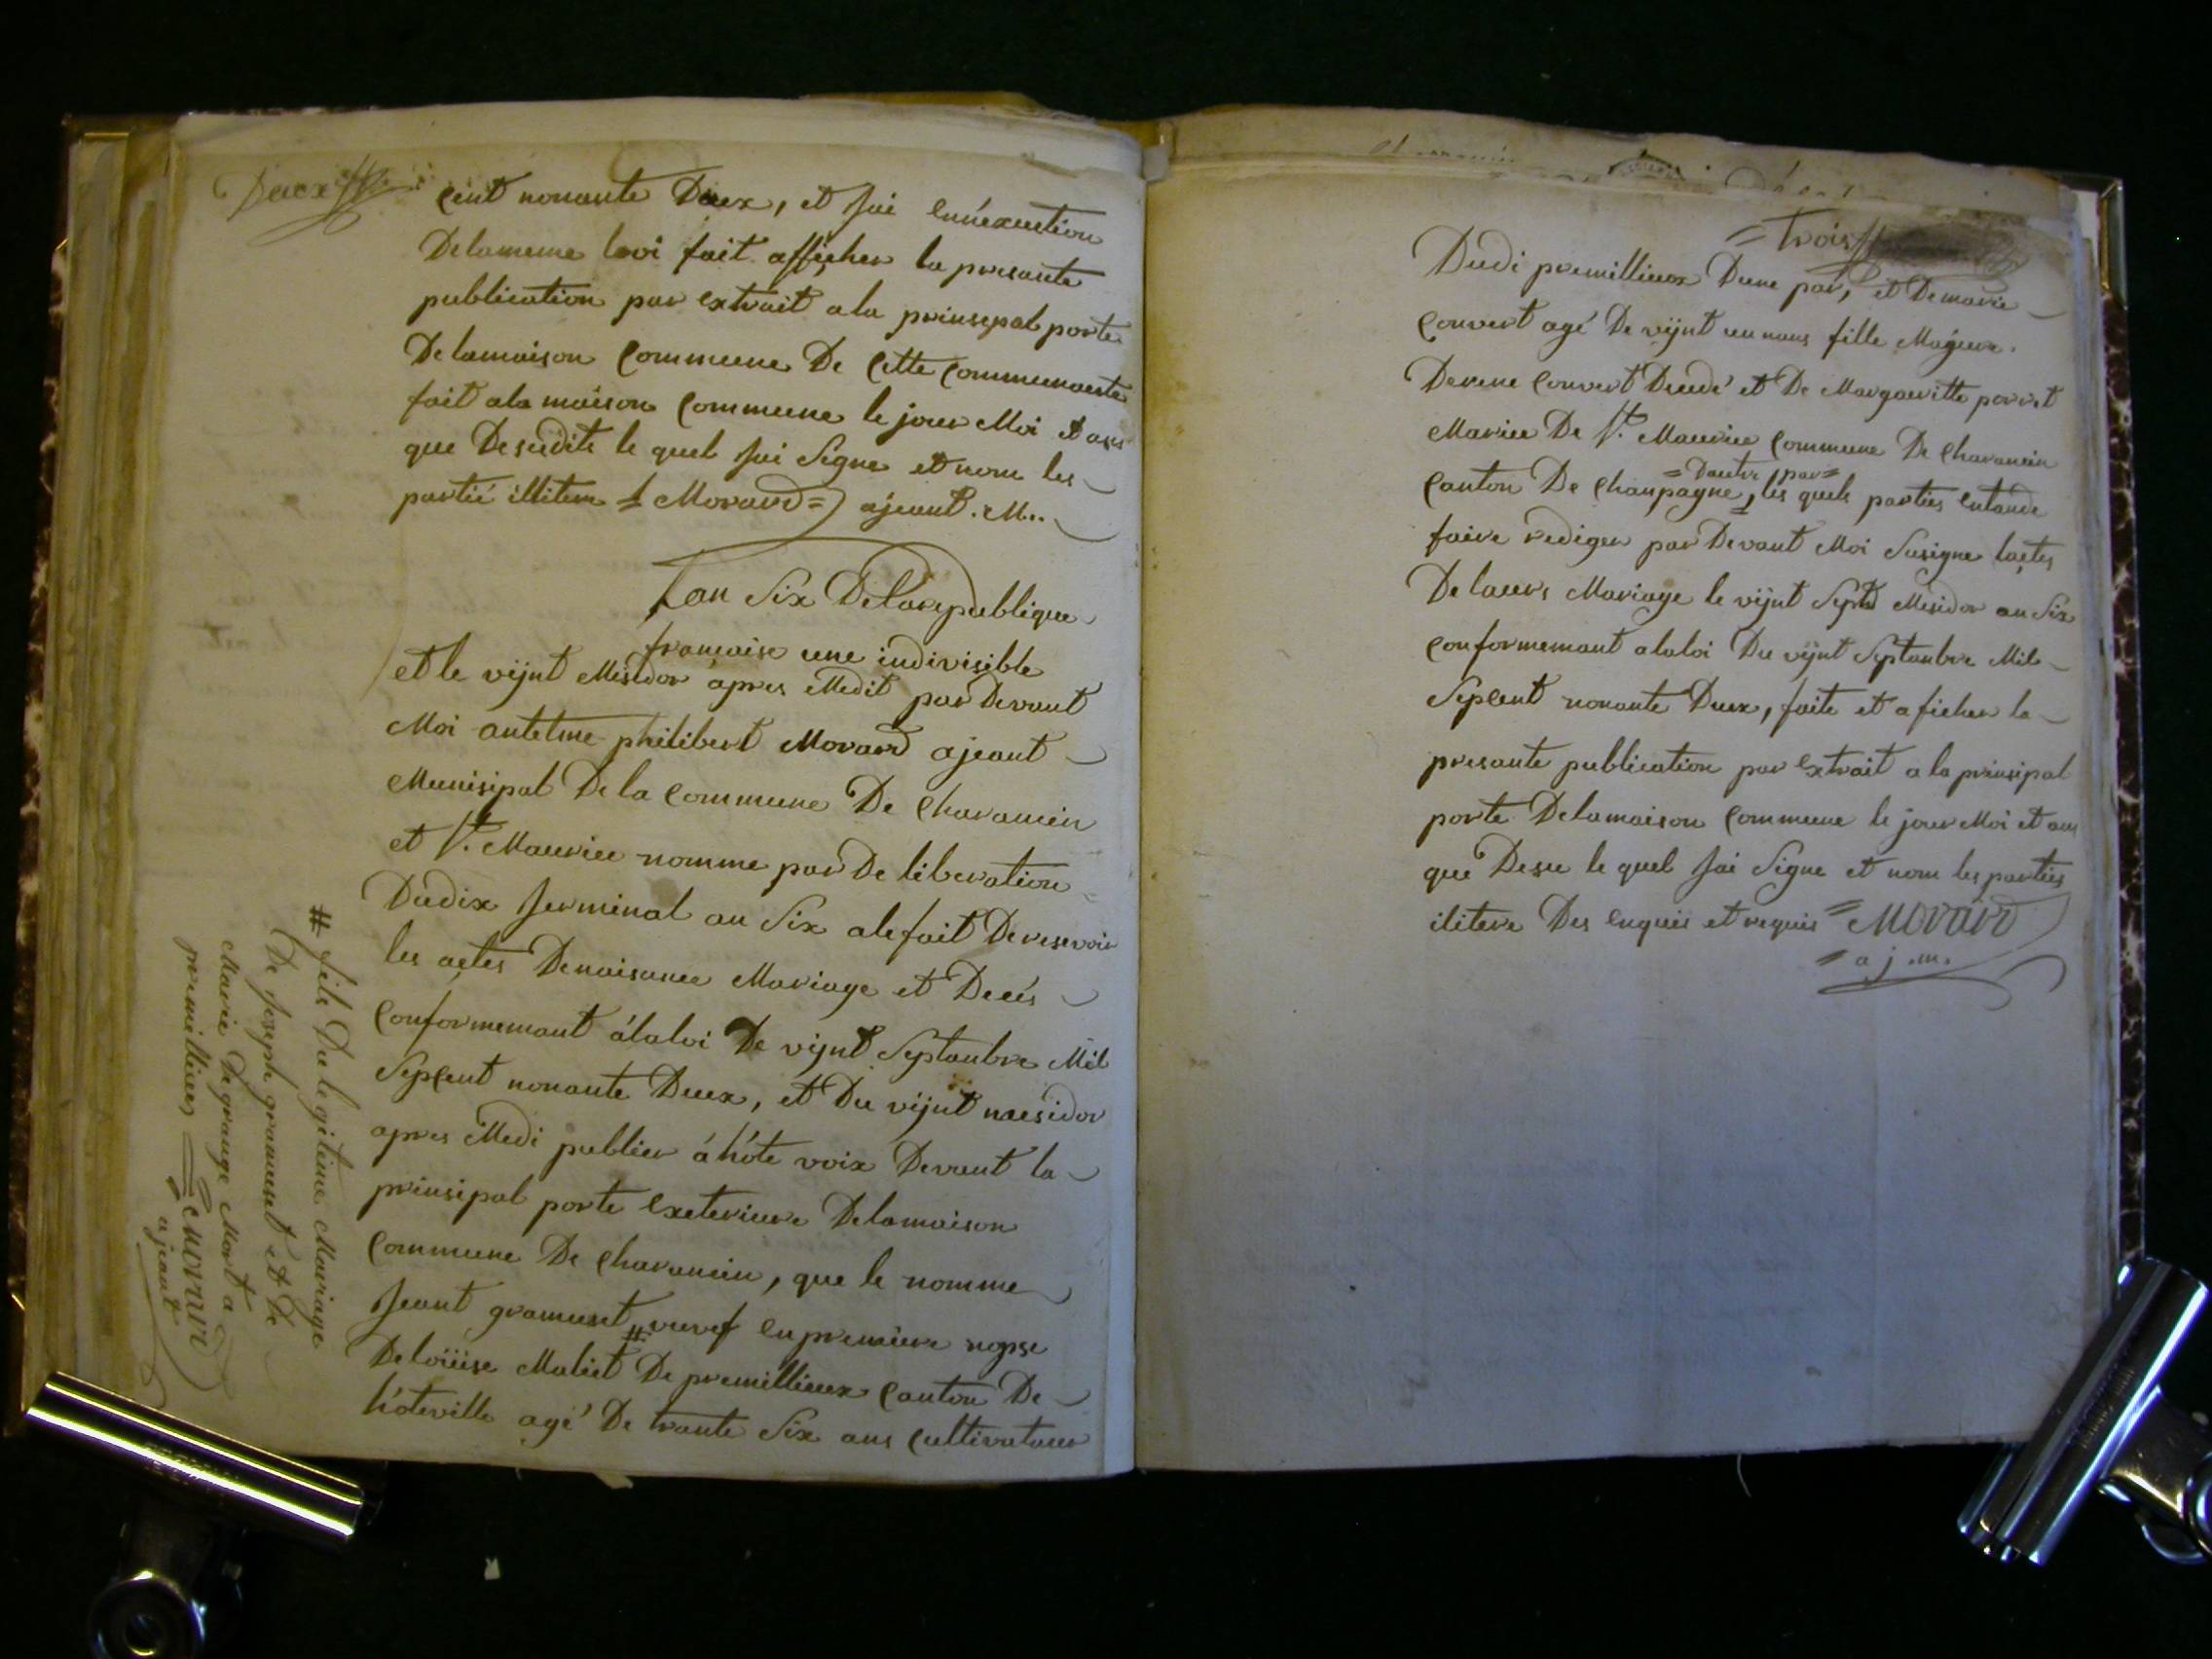 Deux
cent nonante Deux, et Jai enn'exeution
Delameme looi fait afficher la presante
publication par extrait ala prinsepal porte
Delamaison Commune De Cette Communauté
fait ala maison Commune le jour Moi et ans
que Desudite le quel Jai Signe et nom les
partié illitere Morard = ajeant . M..
Lan Six Delarepublique
francaise une indivisible
et le vijnt Mesidor apres Medit par Devant
Moi antelme philibert Morard ajeant
Munisipal De la Commune De Charancin
et St. Maurice nomme par De liberation
Dudix Jerminal an Six alefait Deresevoir
les actes Denaisance Mariage et Decés
Conformemant álaloi De vijnt Septanbre Mil
Sepcent nonante Deux, et Du vijnt mesidor
apres Medi publier á hôte voix Devant la
prinsipal porte Exeterieure Delamaison
Commune De Charancin, que le nomme
Jeant gramuset # veuf enpremiere nopse
Deloüise Maliet De premillieux Canton De
hôteville agé De trante Six ans Cultivataur
# fils Du legitime Mariage
De Joseph gramuset et De
Marie Degrange Mort a
premillieux = Morard
ajeant
= trois
Dudi premillieux Dune par, et Demarie
Convert agé De vijnt un nans fille Majeure.
Derene Convert Decedé et De Margueritte perret
Mariee De St. Maurice Commune De Charancin
= Dautre par =
Canton De Chanpagne, les quels parties entande
faire rediger par Devant Moi Susigne lactes
Delaurs Mariage le vijnt Sept Mesidor an Six
Conformemant alaloi Du vijnt Septanbre Mil
Sepcent nonante Deux, faite et aficher la
presante publication par Extrait a la prinsipal
porte Delamaison Commune le jour Moi et ans
que Desu le quel Jai Signe et nom les parties
ilitere Des enquis et requis = Morard
= a j . m.